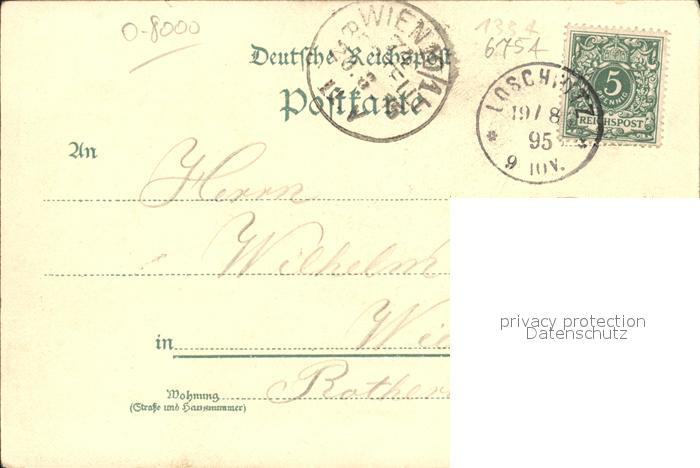 0-8000
1334
6754
Deutsche Reichspost
Postkarte
WIEN
LOSCHWITZ
19/8
95
9-10V.
5
PFENNIG
REICHSPOST
An
Herrn
Wilhelm
in Wie
Rothen
Wohnung
(Straße und Hausnummer)
privacy protection
Datenschutz